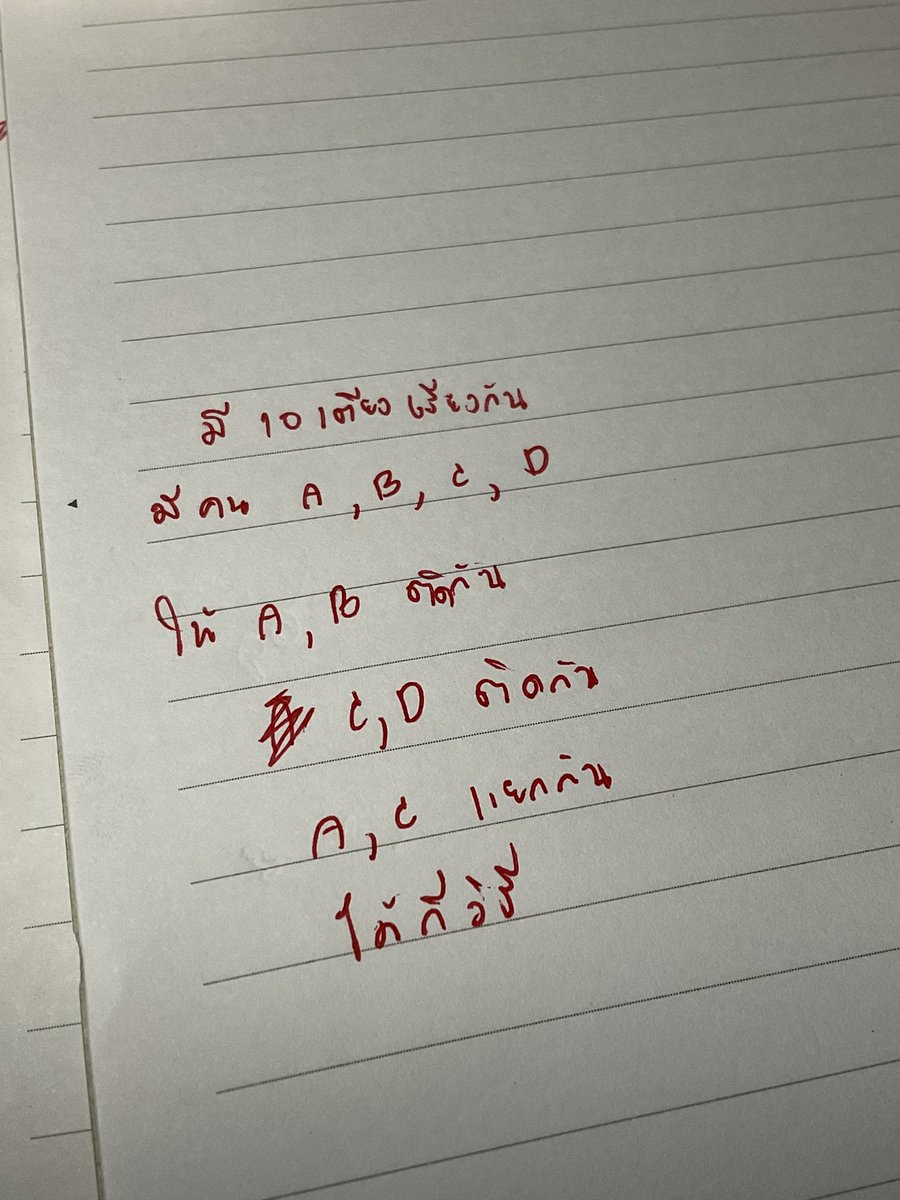 มี 10 เตียง เรียงกัน
มีคน A, B, C, D
ให้ A, B ติดกัน
C, D ติดกัน
A, C แยกกัน
ได้กี่วิธี